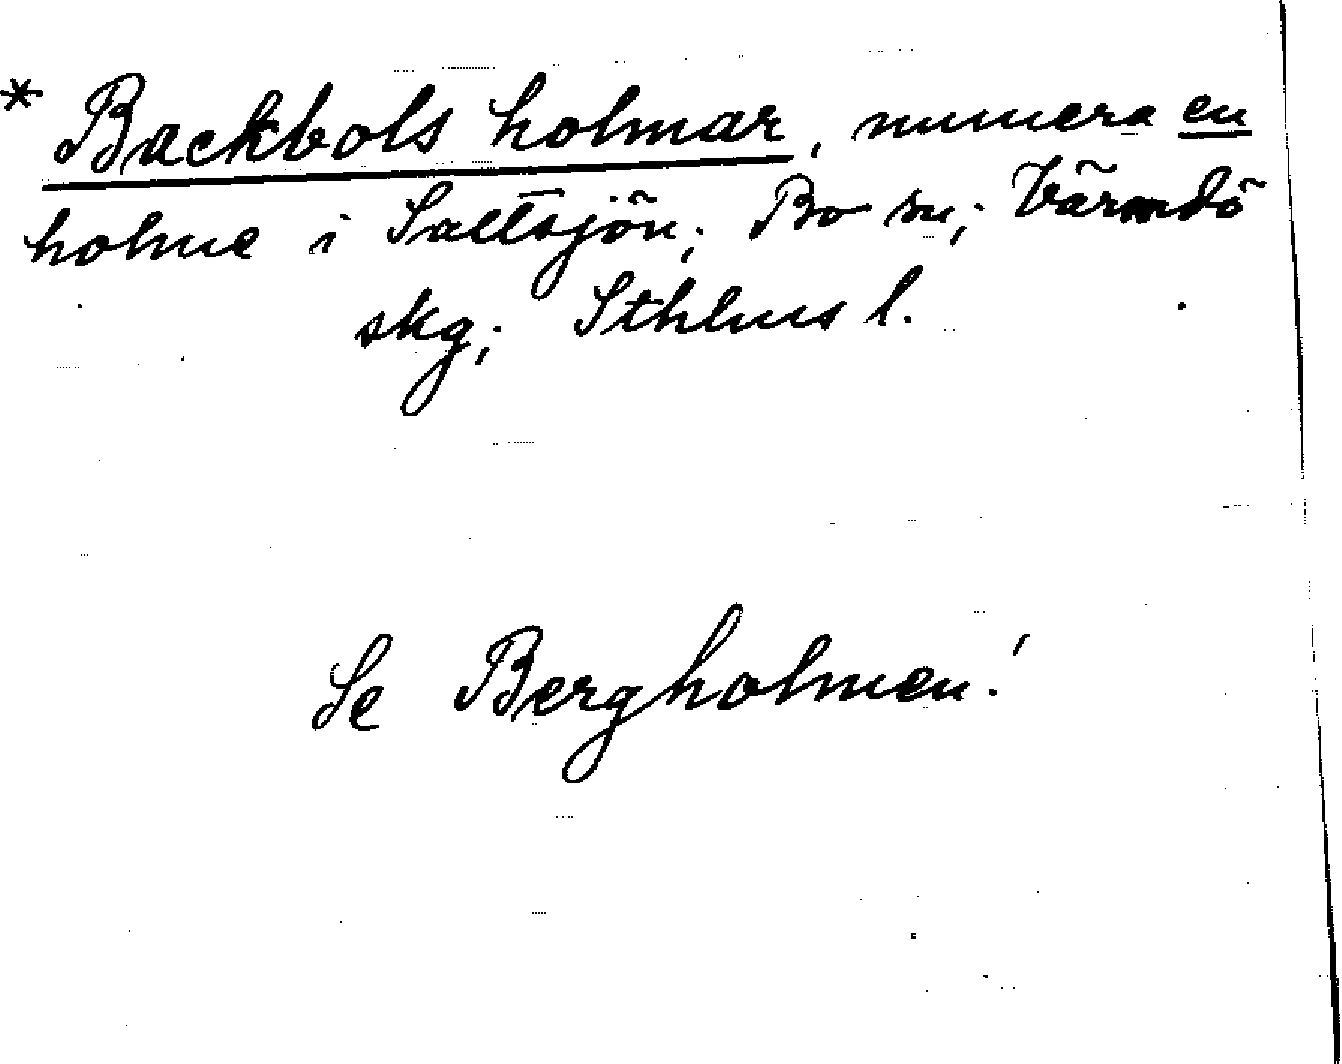 * Backbols holmar, numera en
holme i Saltsjön; Bo sn; Värmdö
skg; Sthlms l.
Se Bergholmen!